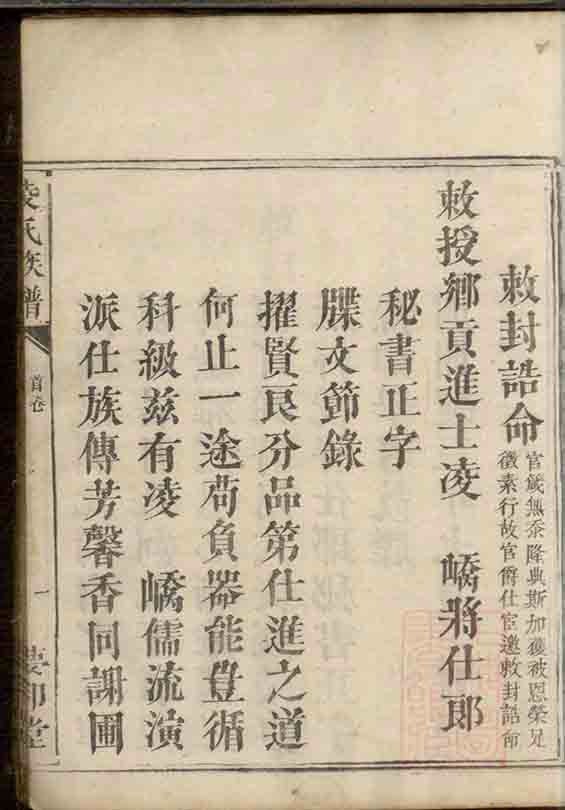 敕封誥命
官箴無忝隆典斯加獲被恩榮足
徵素行故官爵仕宦邀敕封誥命
敕授鄉貢進士凌　嶠將仕郎
秘書正字
牒文節錄
擢賢良分品第仕進之道
何止一途茍負器能豈循
科級茲有凌　嶠儒流演
派仕族傳芳馨香同謝圃
凌氏族譜
首卷
一